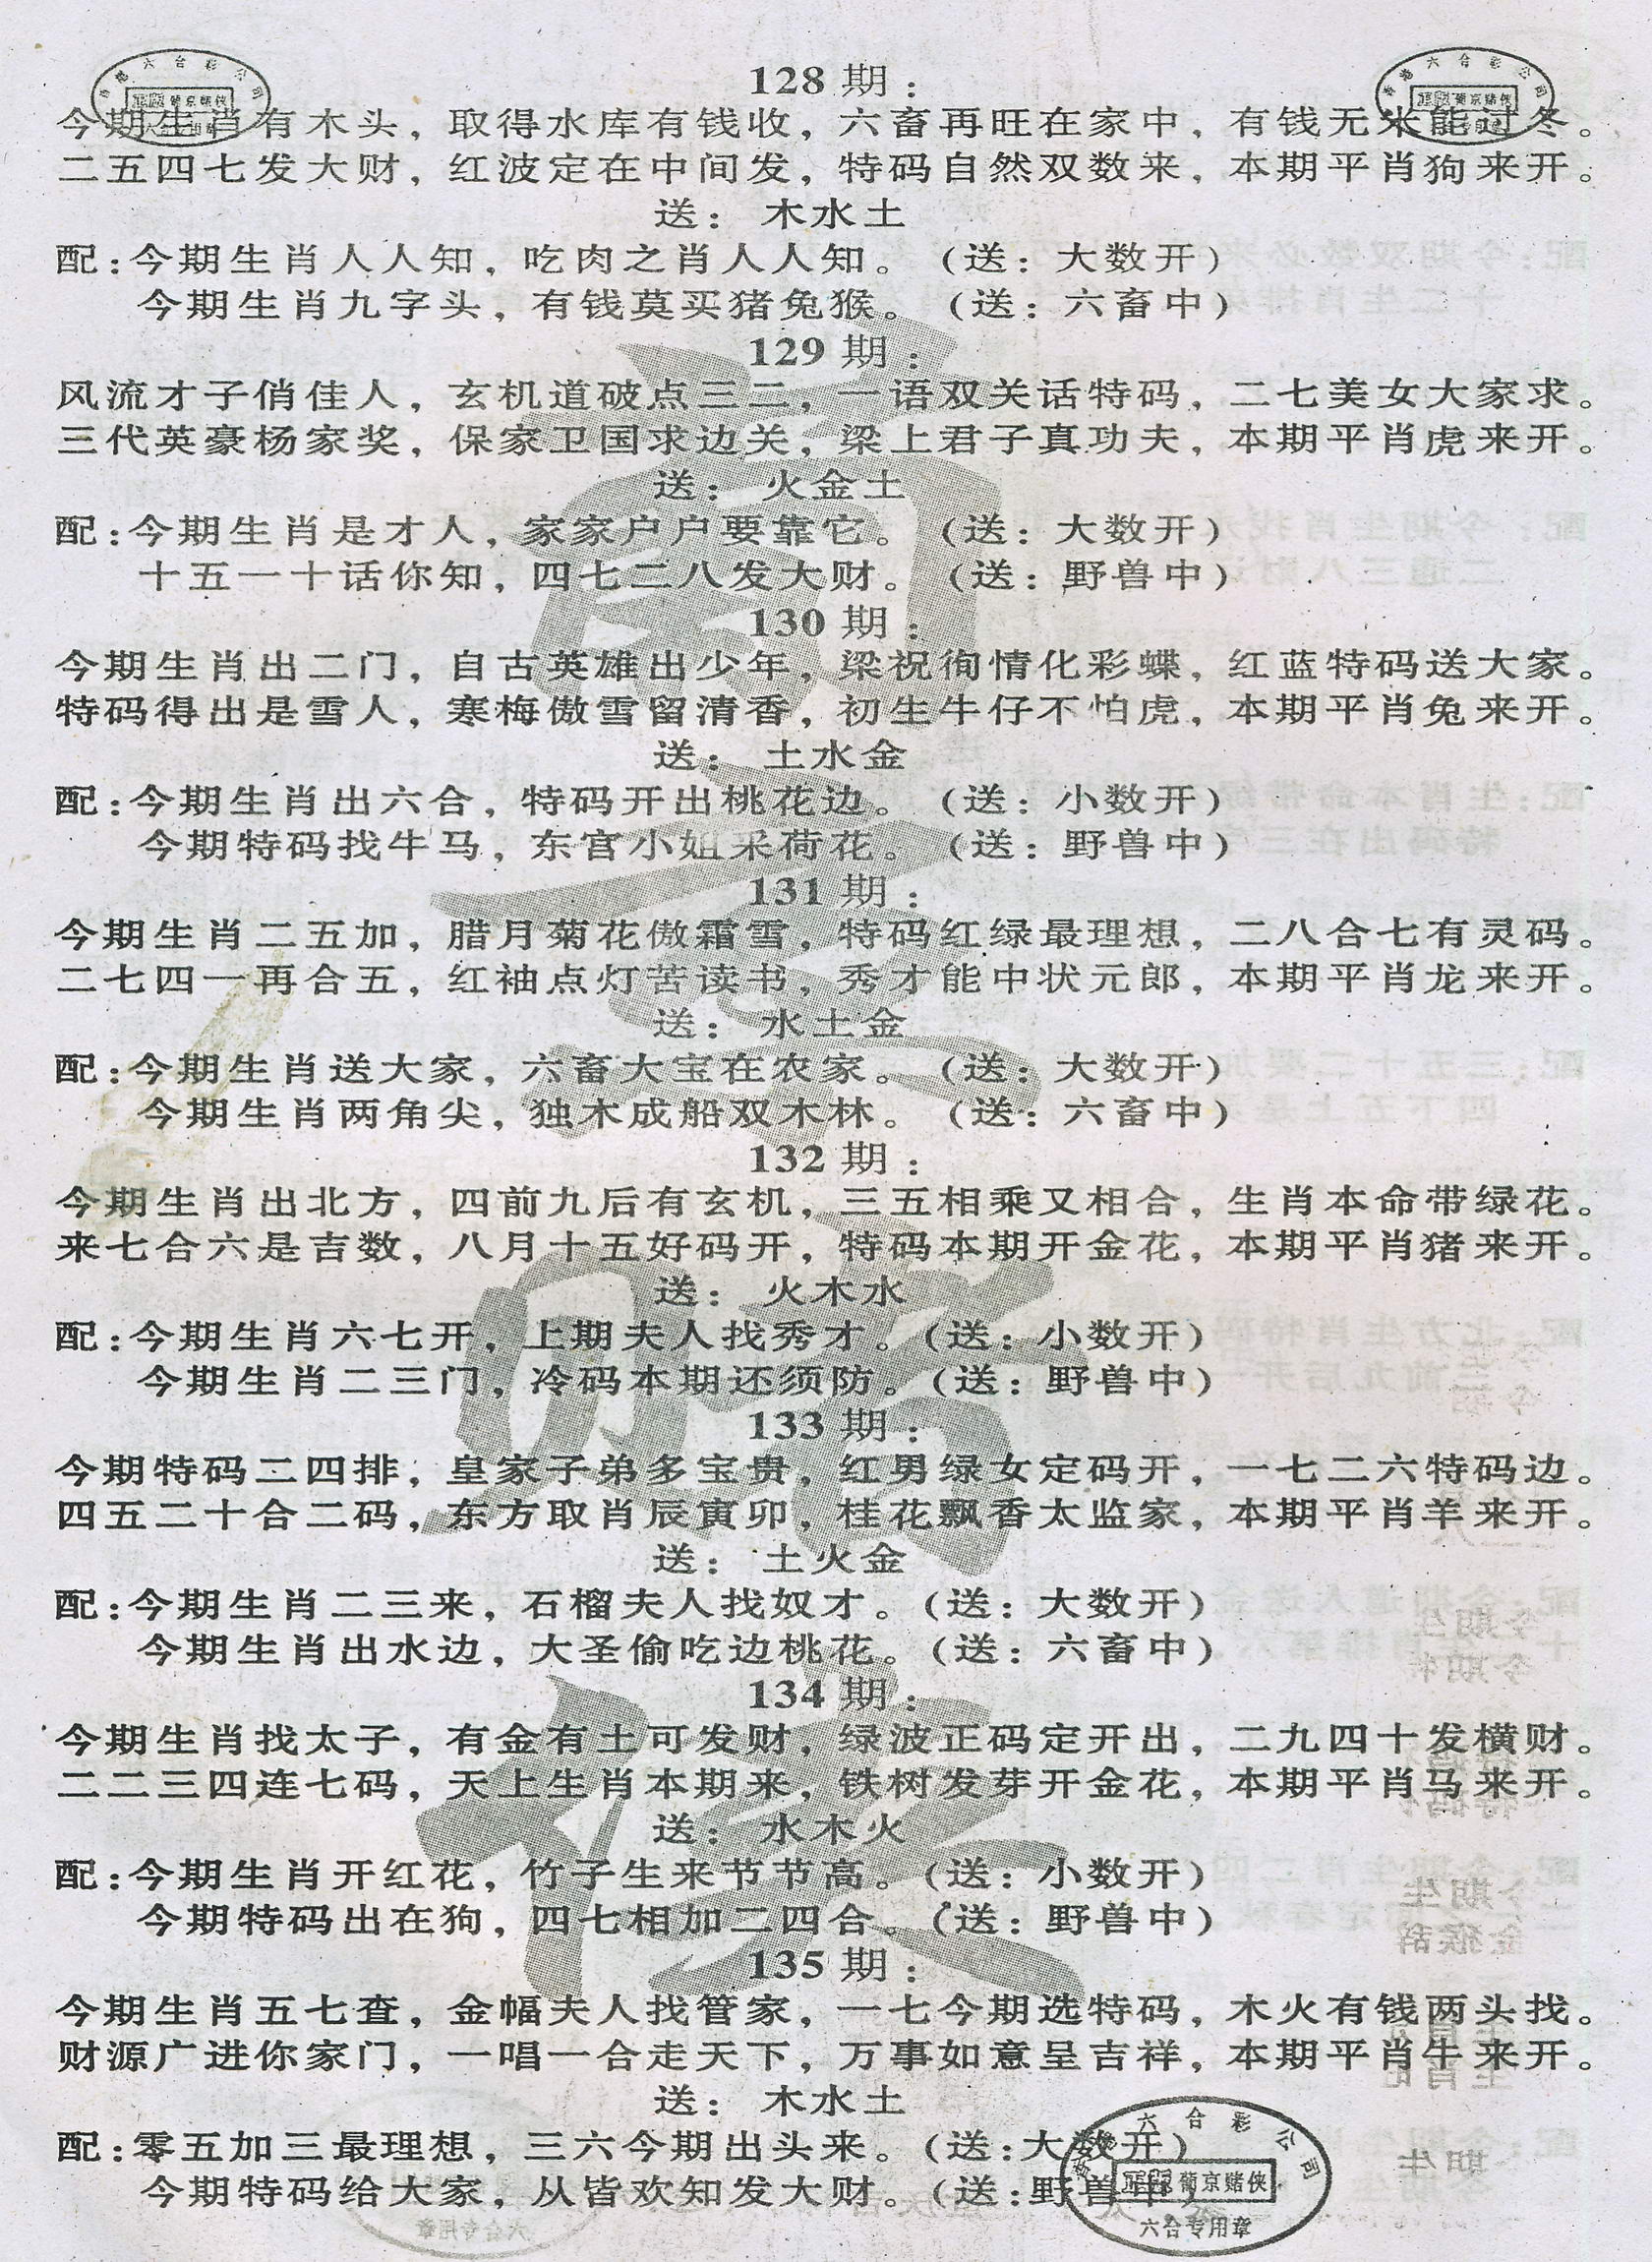 128 期：
今期生肖有木头，取得水库有钱收，六畜再旺在家中，有钱无米能过冬。
二五四七发大财，红波定在中间发，特码自然双数来，本期平肖狗来开。
送： 木水土
配：今期生肖人人知，吃肉之肖人人知。（送：大数开）
今期生肖九字头，有钱莫买猪兔猴。（送：六畜中）
129 期：
风流才子俏佳人，玄机道破点三二，一语双关话特码，二七美女大家求。
三代英豪杨家奖，保家卫国求边关，梁上君子真功夫，本期平肖虎来开。
送： 火金土
配：今期生肖是才人，家家户户要靠它。（送：大数开）
十五一十话你知，四七二八发大财。（送：野兽中）
130 期：
今期生肖出二门，自古英雄出少年，梁祝徇情化彩蝶，红蓝特码送大家。
特码得出是雪人，寒梅傲雪留清香，初生牛仔不怕虎，本期平肖兔来开。
送： 土水金
配：今期生肖出六合，特码开出桃花边。（送：小数开）
今期特码找牛马，东宫小姐采荷花。（送：野兽中）
131 期：
今期生肖二五加，腊月菊花傲霜雪，特码红绿最理想，二八合七有灵码。
二七四一再合五，红袖点灯苦读书，秀才能中状元郎，本期平肖龙来开。
送： 水土金
配：今期生肖送大家，六畜大宝在农家。（送：大数开）
今期生肖两角尖，独木成船双木林。（送：六畜中）
132 期：
今期生肖出北方，四前九后有玄机，三五相乘又相合，生肖本命带绿花。
来七合六是吉数，八月十五好码开，特码本期开金花，本期平肖猪来开。
送： 火木水
配：今期生肖六七开，上期夫人找秀才。（送：小数开）
今期生肖二三门，冷码本期还须防。（送：野兽中）
133 期：
今期特码二四排，皇家子弟多宝贵，红男绿女定码开，一七二六特码边。
四五二十合二码，东方取肖辰寅卯，桂花飘香太监家，本期平肖羊来开。
送： 土火金
配：今期生肖二三来，石榴夫人找奴才。（送：大数开）
今期生肖出水边，大圣偷吃边桃花。（送：六畜中）
134 期：
今期生肖找太子，有金有土可发财，绿波正码定开出，二九四十发横财。
二二三四连七码，天上生肖本期来，铁树发芽开金花，本期平肖马来开。
送： 水木火
配：今期生肖开红花，竹子生来节节高。（送：小数开）
今期特码出在狗，四七相加二四合。（送：野兽中）
135 期：
今期生肖五七查，金幅夫人找管家，一七今期选特码，木火有钱两头找。
财源广进你家门，一唱一合走天下，万事如意呈吉祥，本期平肖牛来开。
送： 木水土
配：零五加三最理想，三六今期出头来。（送：大数开）
今期特码给大家，从皆欢知发大财。（送：野兽中）
六合彩公司
正版葡京赌侠
六合专用章